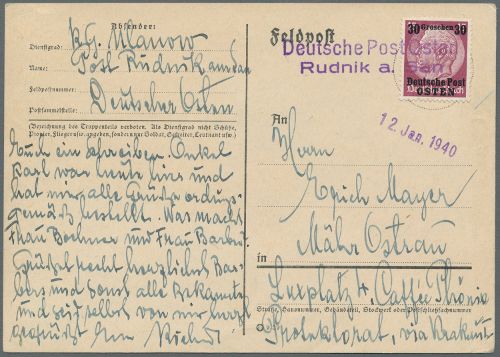 Absender:
Dienstgrad: Kg. Ulanow
Name: Post Rudnik am San
Feldpostnummer: Deutscher Osten
Postsammelstelle:
(Bezeichnung des Truppenteils verboten. Als Dienstgrad nicht Schütze,
Pionier, Flieger usw. angeben, sondern nur Soldat, Gefreiter, Leutnant usw.)
Euch ein schreiben. Onkel
Karl war heute hier und
hat mir alle Grüße ordnungs-
gemäß bestellt. Was macht
Frau Boehmer und Frau
recht herzlichst
und sonst alle Bekannten
und seid selbst von mir herzl
gegrüßt Euer
Feldpost
Deutsche Post Osten
Rudnik a. San
30 Groschen 30
Deutsche Post
OSTEN
12. Jan. 1940
An
Herrn
Erich Mayer
Mähr Ostrau
in
Luxplatz 4, Caffee Phönix
Straße, Hausnummer, Gebäudeteil, Stockwerk oder Postschließfachnummer
Protektorat, via Krakau